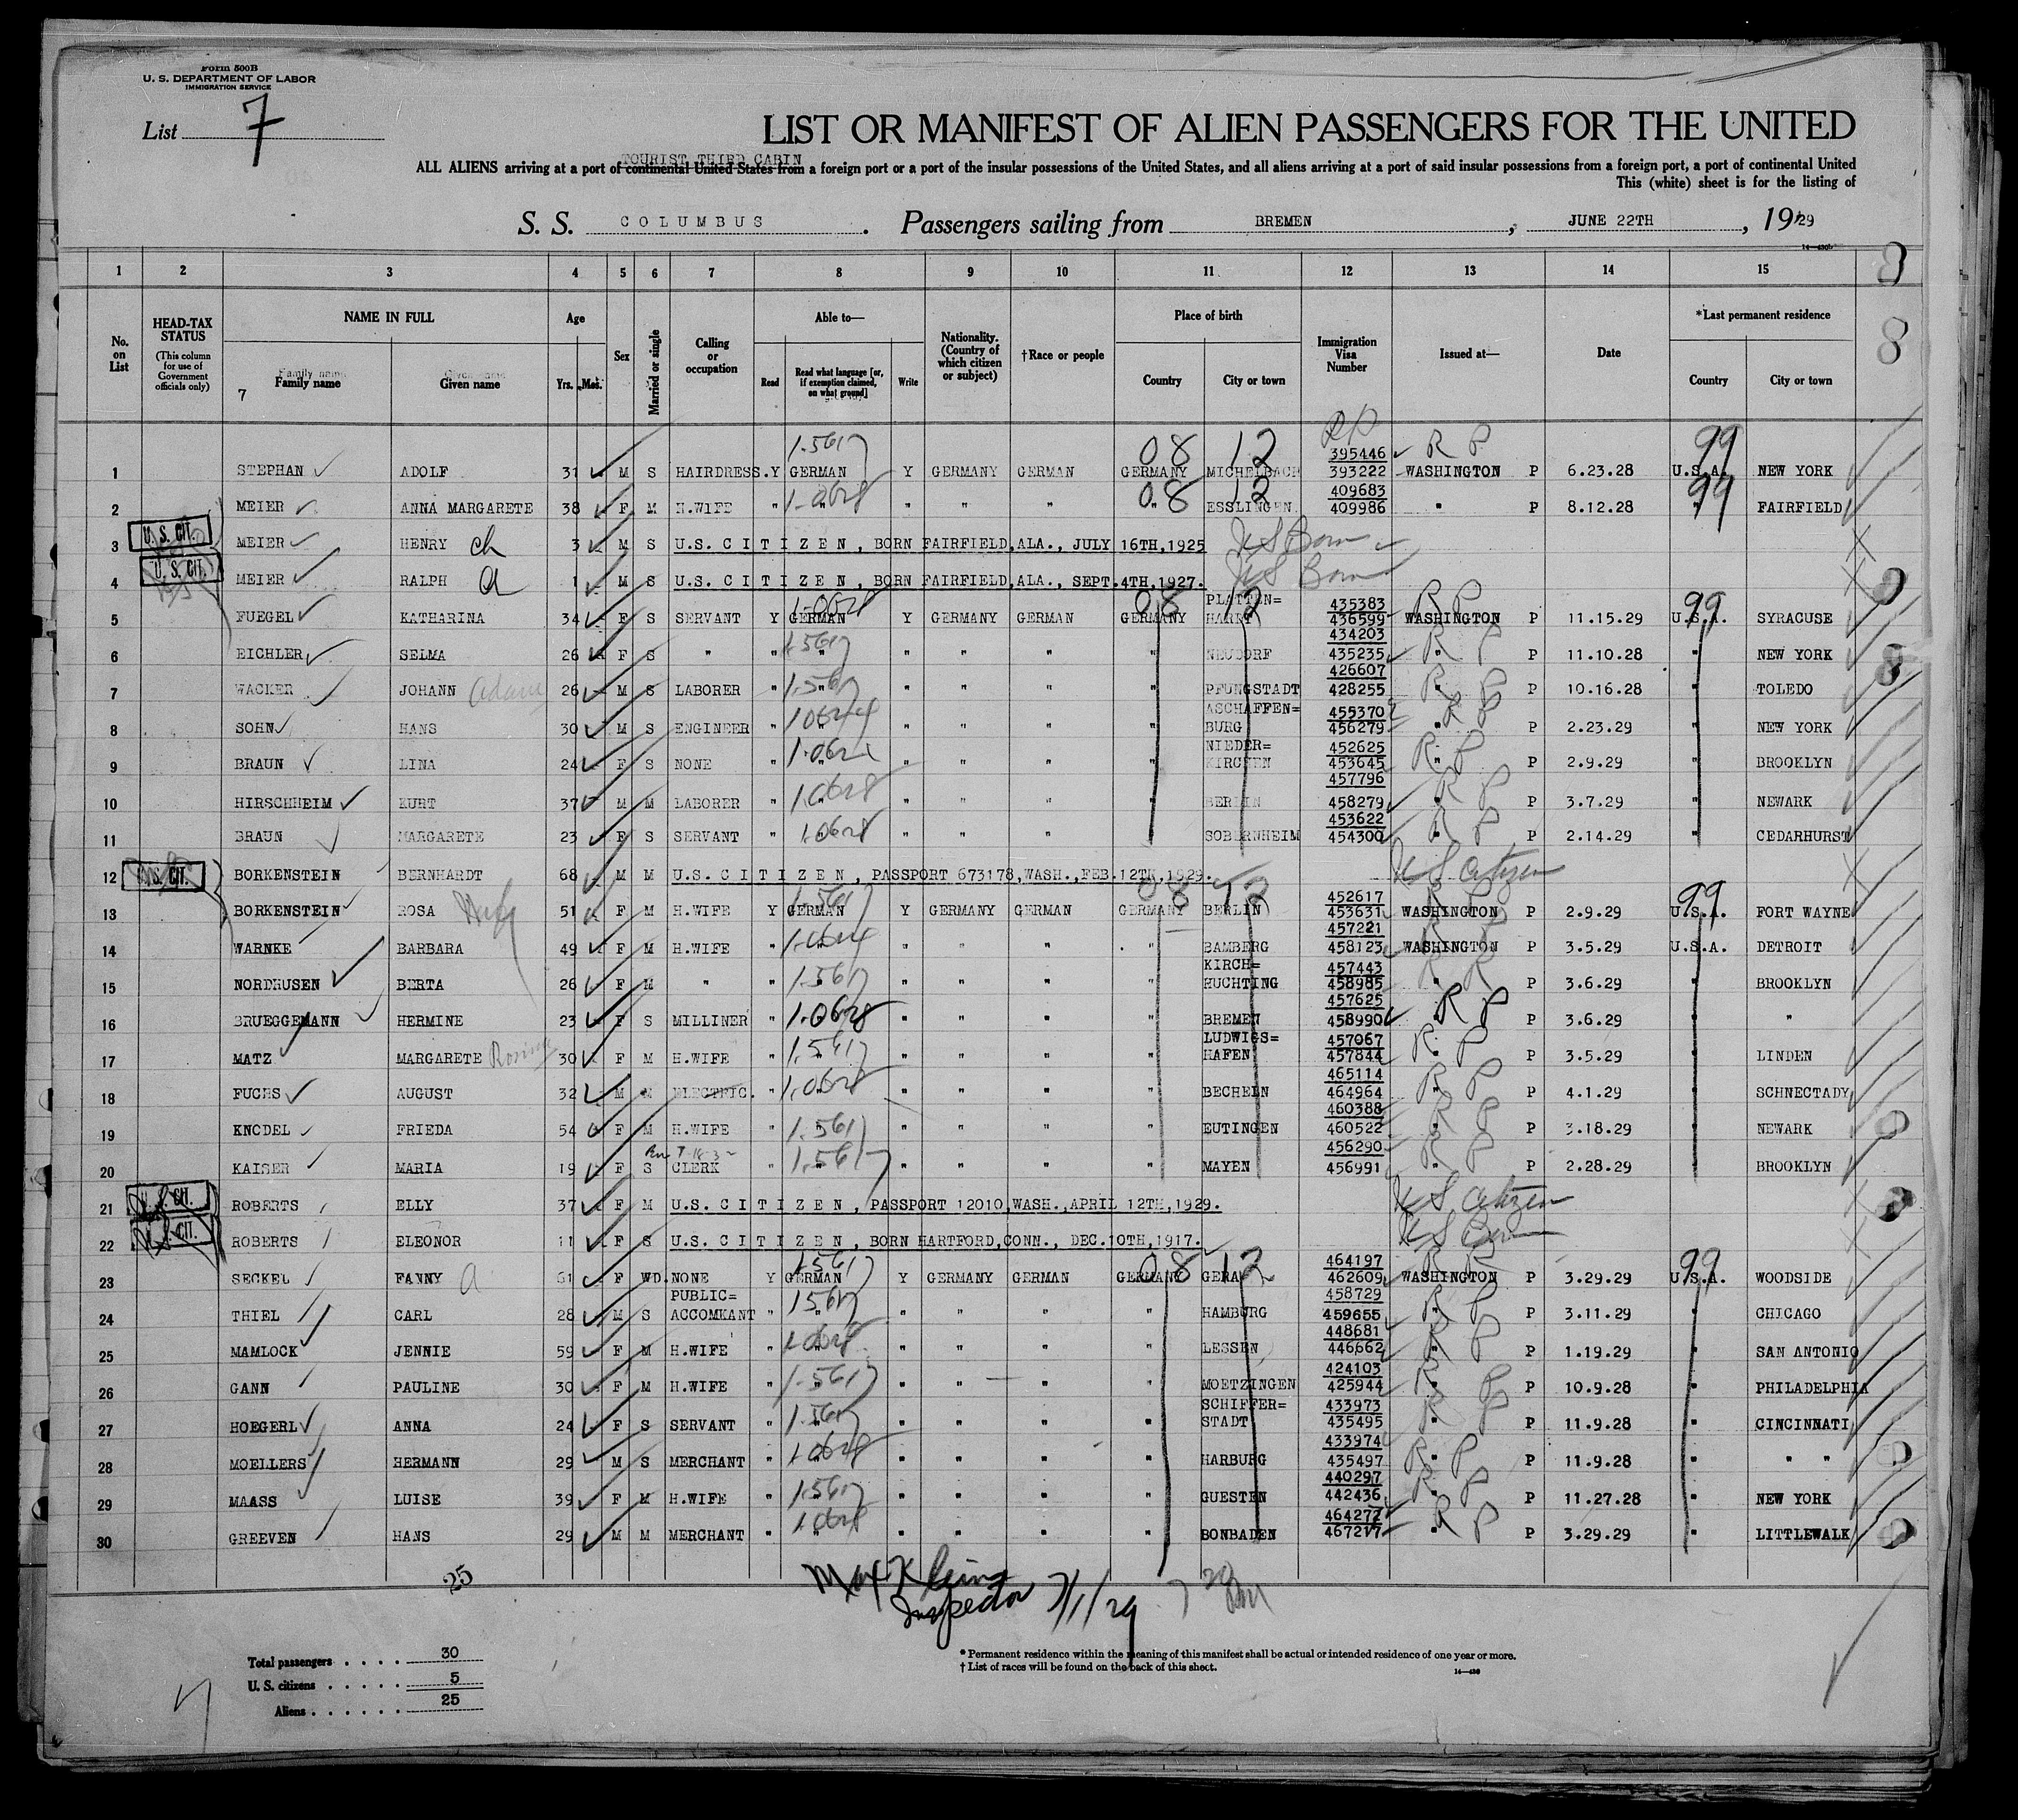 Form 500B
U. S. DEPARTMENT OF LABOR
IMMIGRATION SERVICE
List 7
LIST OR MANIFEST OF ALIEN PASSENGERS FOR THE UNITED
TOURIST THIRD CABIN
ALL ALIENS arriving at a port of continental United States from a foreign port or a port of the insular possessions of the United States, and all aliens arriving at a port of said insular possessions from a foreign port, a port of continental United
This (white) sheet is for the listing of
S. S. COLUMBUS. Passengers sailing from BREMEN, JUNE 22TH, 1929
14—430b
1 2 3 4 5 6 7 8 9 10 11 12 13 14 15 8
No. on List
HEAD-TAX STATUS (This column for use of Government officials only)
NAME IN FULL Family name Given name
7
Age Yrs. Mos.
Sex
Married or single
Calling or occupation
Able to— Read Read what language [or, if exemption claimed, on what ground] Write
Nationality. (Country of which citizen or subject)
†Race or people
Place of birth Country City or town
Immigration Visa Number
Issued at—
Date
*Last permanent residence Country City or town
8
RP
1-5617 08 12 395446 R P 99
1 STEPHAN ADOLF 31 M S HAIRDRESS. Y GERMAN Y GERMANY GERMAN GERMANY MICHELBACH 393222 WASHINGTON P 6.23.28 U.S.A. NEW YORK
1-0628 08 12 409683 99
2 MEIER ANNA MARGARETE 38 F M H.WIFE " " " " " " ESSLINGEN 409986 " P 8.12.28 " FAIRFIELD
U. S. CIT.
3 MEIER HENRY ch 3 M S U.S. CITIZEN, BORN FAIRFIELD,ALA., JULY 16TH,1925 US Born
U. S. CIT.
4 MEIER RALPH 1 M S U.S. CITIZEN, BORN FAIRFIELD,ALA., SEPT.4TH,1927. US Born
1-0628 08 12 PLATTEN= 435383 R P 99
5 FUEGEL KATHARINA 34 F S SERVANT Y GERMAN Y GERMANY GERMAN GERMANY HARDT 436599 WASHINGTON P 11.15.29 U.S.A. SYRACUSE
1-5617 434203 R P
6 EICHLER SELMA 26 F S " " " " " " " NEUDORF 435235 " P 11.10.28 " NEW YORK
1-5617 426607 R P
7 WACKER JOHANN Adam 26 M S LABORER " " " " " " PFUNGSTADT 428255 " P 10.16.28 " TOLEDO
10644 ASCHAFFEN= 455370 R P
8 SOHN HANS 30 M S ENGINEER " " " " " " BURG 456279 " P 2.23.29 " NEW YORK
NIEDER= 452625 R P
9 BRAUN LINA 24 F S NONE " " " " " " KIRCHEN 453645 " P 2.9.29 " BROOKLYN
1-0628 457796 R P
10 HIRSCHHEIM KURT 37 M M LABORER " " " " " " BERLIN 458279 " P 3.7.29 " NEWARK
1-0628 453622 R P
11 BRAUN MARGARETE 23 F S SERVANT " " " " " " SOBERNHEIM 454300 " P 2.14.29 " CEDARHURST
U. S. CIT.
12 BORKENSTEIN BERNHARDT 68 M M U.S. CITIZEN, PASSPORT 673178,WASH.,FEB.12TH,1929. US Citizen
1-5617 08 12 452617 99
13 BORKENSTEIN ROSA Wife 51 F M H.WIFE Y GERMAN Y GERMANY GERMAN GERMANY BERLIN 453631 WASHINGTON P 2.9.29 U.S.A. FORT WAYNE
457221
14 WARNKE BARBARA 49 F M H.WIFE " " " " " " BAMBERG 458123 WASHINGTON P 3.5.29 U.S.A. DETROIT
1-5617 KIRCH= 457443
15 NORDHUSEN BERTA 26 F M " " " " " " " HUCHTING 458985 " P 3.6.29 " BROOKLYN
1-0628 457625 R P
16 BRUEGGEMANN HERMINE 23 F S MILLINER " " " " " " BREMEN 458990 " P 3.6.29 " "
1-5617 LUDWIGS= 457067 R P
17 MATZ MARGARETE Rosina 30 F M H.WIFE " " " " " " HAFEN 457844 " P 3.5.29 " LINDEN
1-0628 465114 R P
18 FUCHS AUGUST 32 M M ELECTRIC. " " " " " " BECHELN 464964 " P 4.1.29 " SCHNECTADY
1-5617 460388 R P
19 KNODEL FRIEDA 54 F M H.WIFE " " " " " " EUTINGEN 460522 " P 3.18.29 " NEWARK
1-5617 456290 R P
20 KAISER MARIA 19 F S CLERK " " " " " " MAYEN 456991 " P 2.28.29 " BROOKLYN
U. S. CIT.
21 ROBERTS ELLY 37 F M U.S. CITIZEN, PASSPORT 12010,WASH.,APRIL 12TH,1929. US Citizen
U. S. CIT.
22 ROBERTS ELEONOR 11 F S U.S. CITIZEN, BORN HARTFORD,CONN., DEC.10TH,1917. US Born
1-5617 08 12 464197 R P 99
23 SECKEL FANNY 61 F WD. NONE Y GERMAN Y GERMANY GERMAN GERMANY GERA 462609 WASHINGTON P 3.29.29 U.S.A. WOODSIDE
1-5617 PUBLIC= 458729 R P
24 THIEL CARL 28 M S ACCOMKANT " " " " " " HAMBURG 459655 " P 3.11.29 " CHICAGO
1-0628 448681 R P
25 MAMLOCK JENNIE 59 F M H.WIFE " " " " " " LESSEN 446662 " P 1.19.29 " SAN ANTONIO
1-5617 424103 R P
26 GANN PAULINE 30 F M H.WIFE " " " " " " MOETZINGEN 425944 " P 10.9.28 " PHILADELPHIA
1-5617 SCHIFFER= 433973 R P
27 HOEGERL ANNA 24 F S SERVANT " " " " " " STADT 435495 " P 11.9.28 " CINCINNATI
1-0628 433974 R P
28 MOELLERS HERMANN 29 M S MERCHANT " " " " " " HARBURG 435497 " P 11.9.28 " " "
1-5617 440297 R P
29 MAASS LUISE 39 F M H.WIFE " " " " " " GUESTEN 442436 " P 11.27.28 " NEW YORK
1-0628 464277 R P
30 GREEVEN HANS 29 M M MERCHANT " " " " " " BONBADEN 467217 " P 3.29.29 " LITTLEWALK
25
Max Klein
Inspector 7/1/29
Total passengers 30
U. S. citizens 5
Aliens 25
* Permanent residence within the meaning of this manifest shall be actual or intended residence of one year or more.
† List of races will be found on the back of this sheet.
14—430